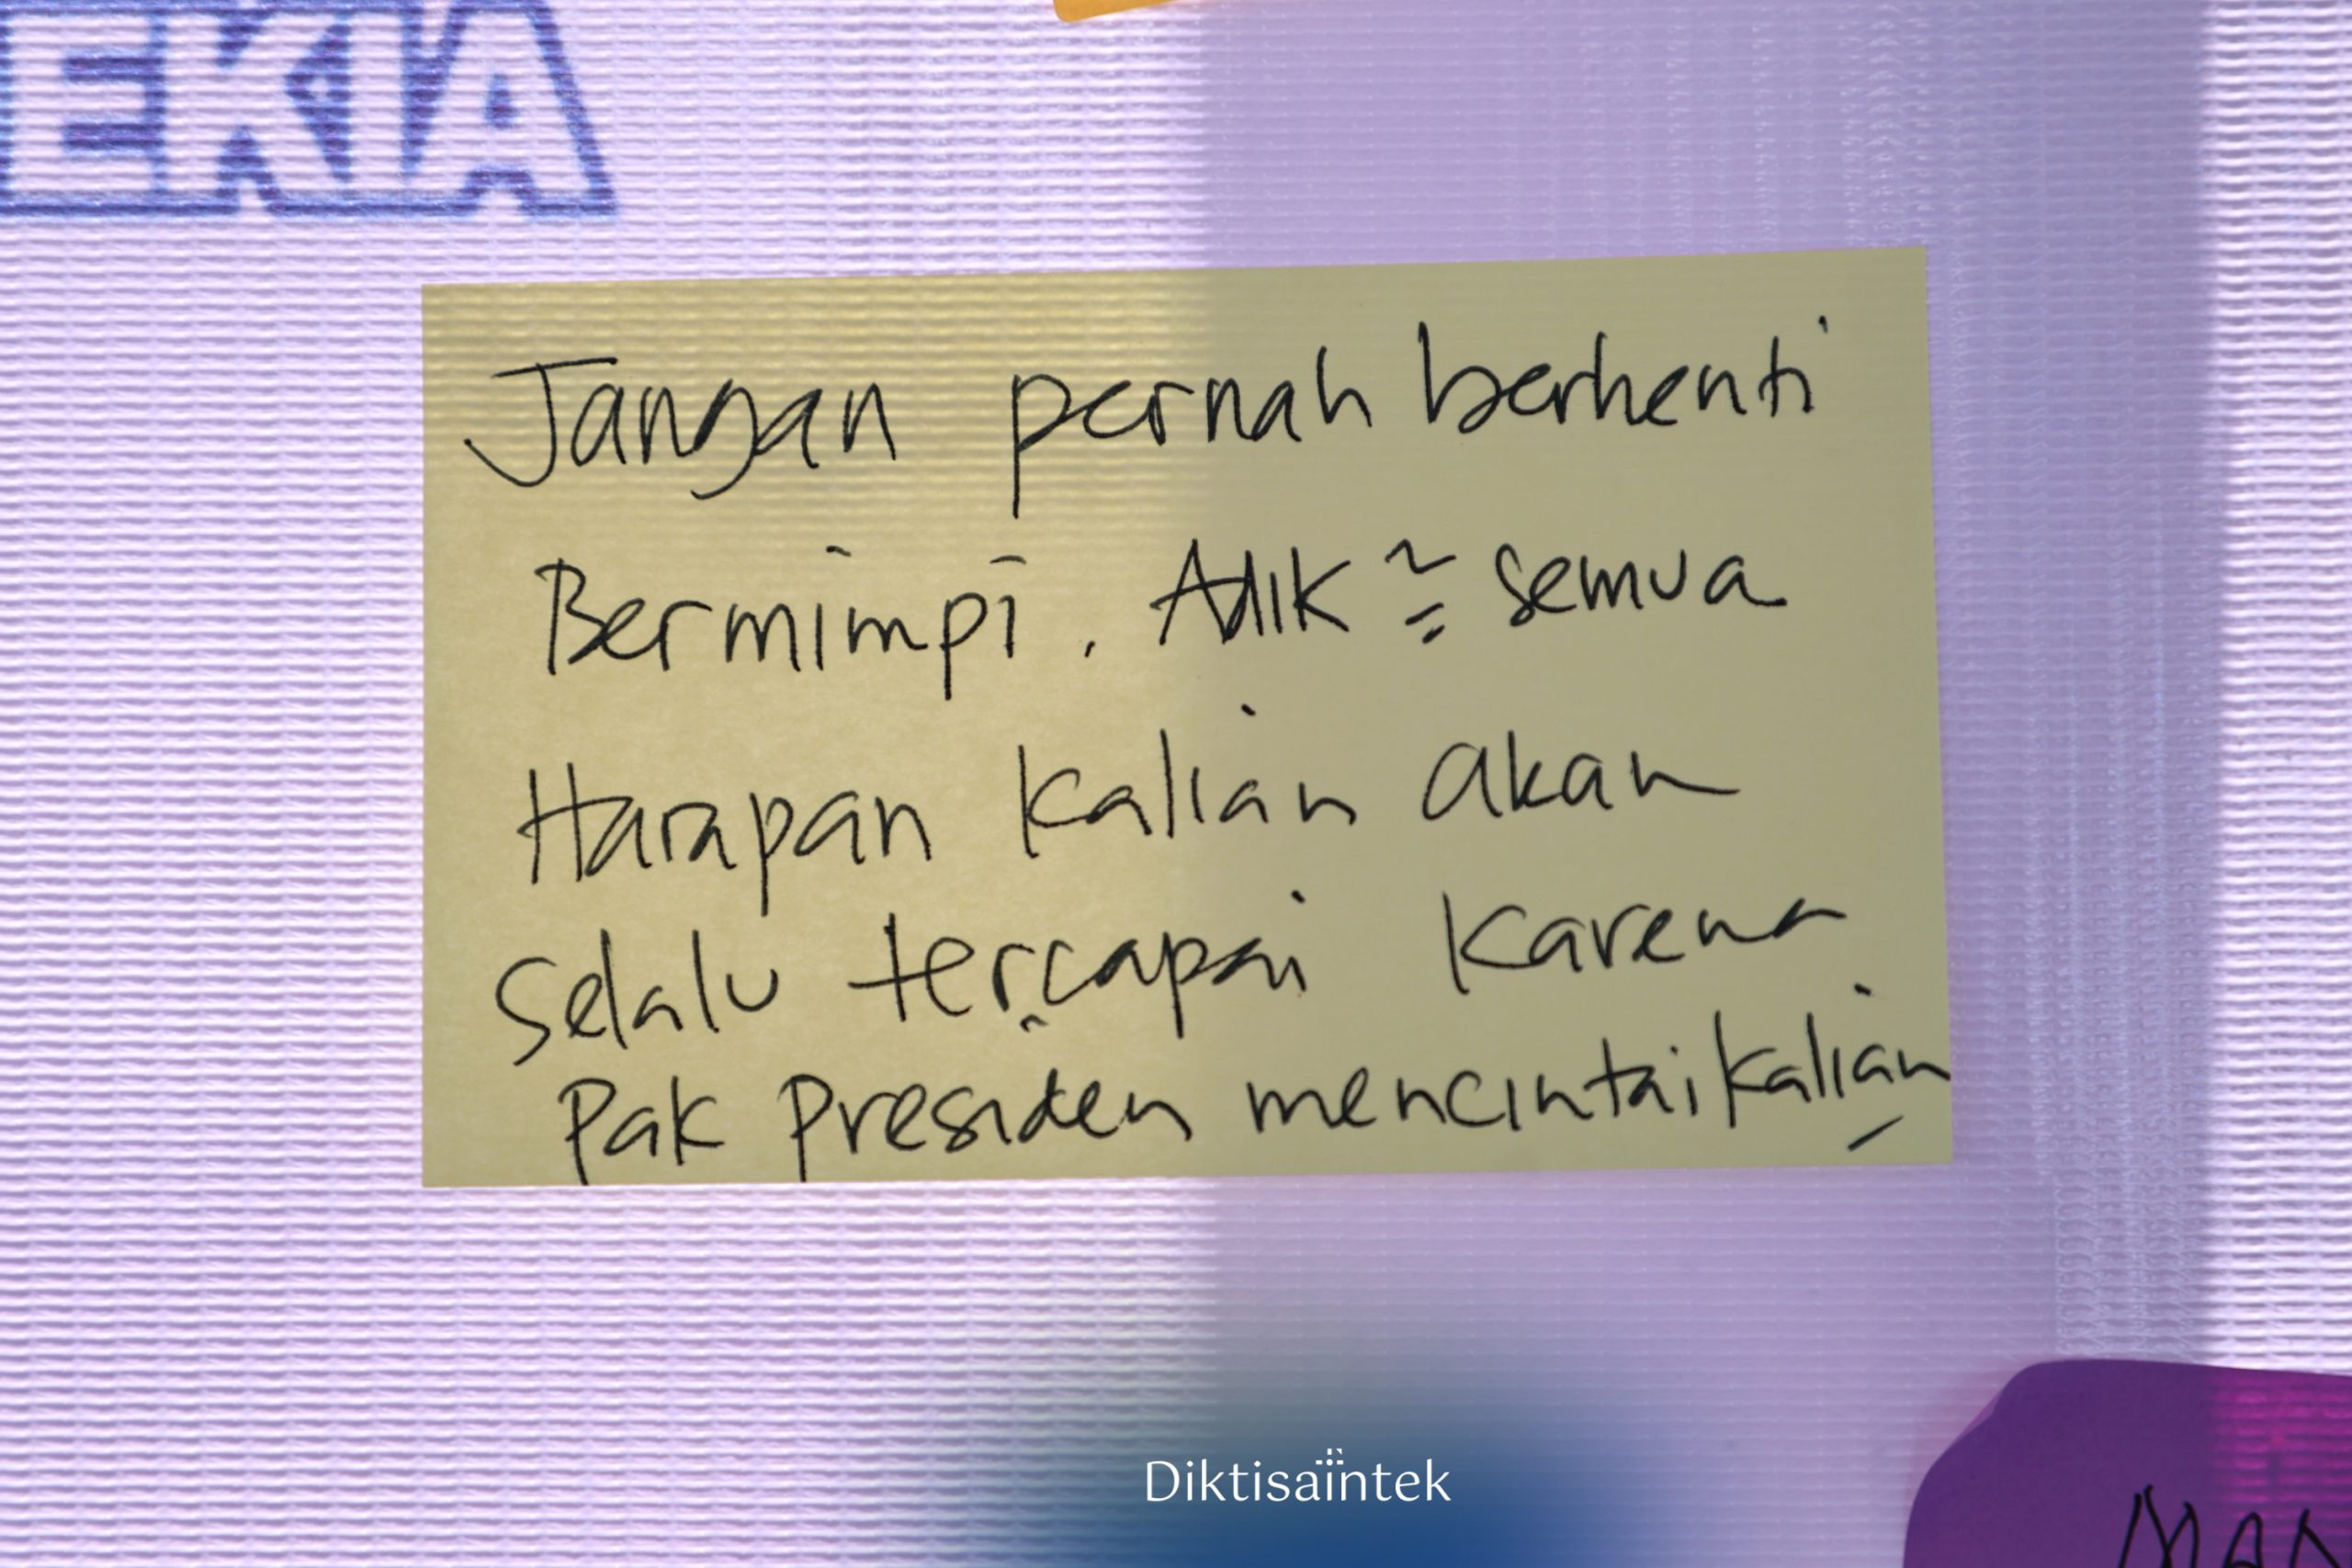 EKIA
Jangan pernah berhenti
Bermimpi. Adik ~ semua
Harapan kalian akan
selalu tercapai karena
Pak Presiden mencintai kalian
Diktisaintek